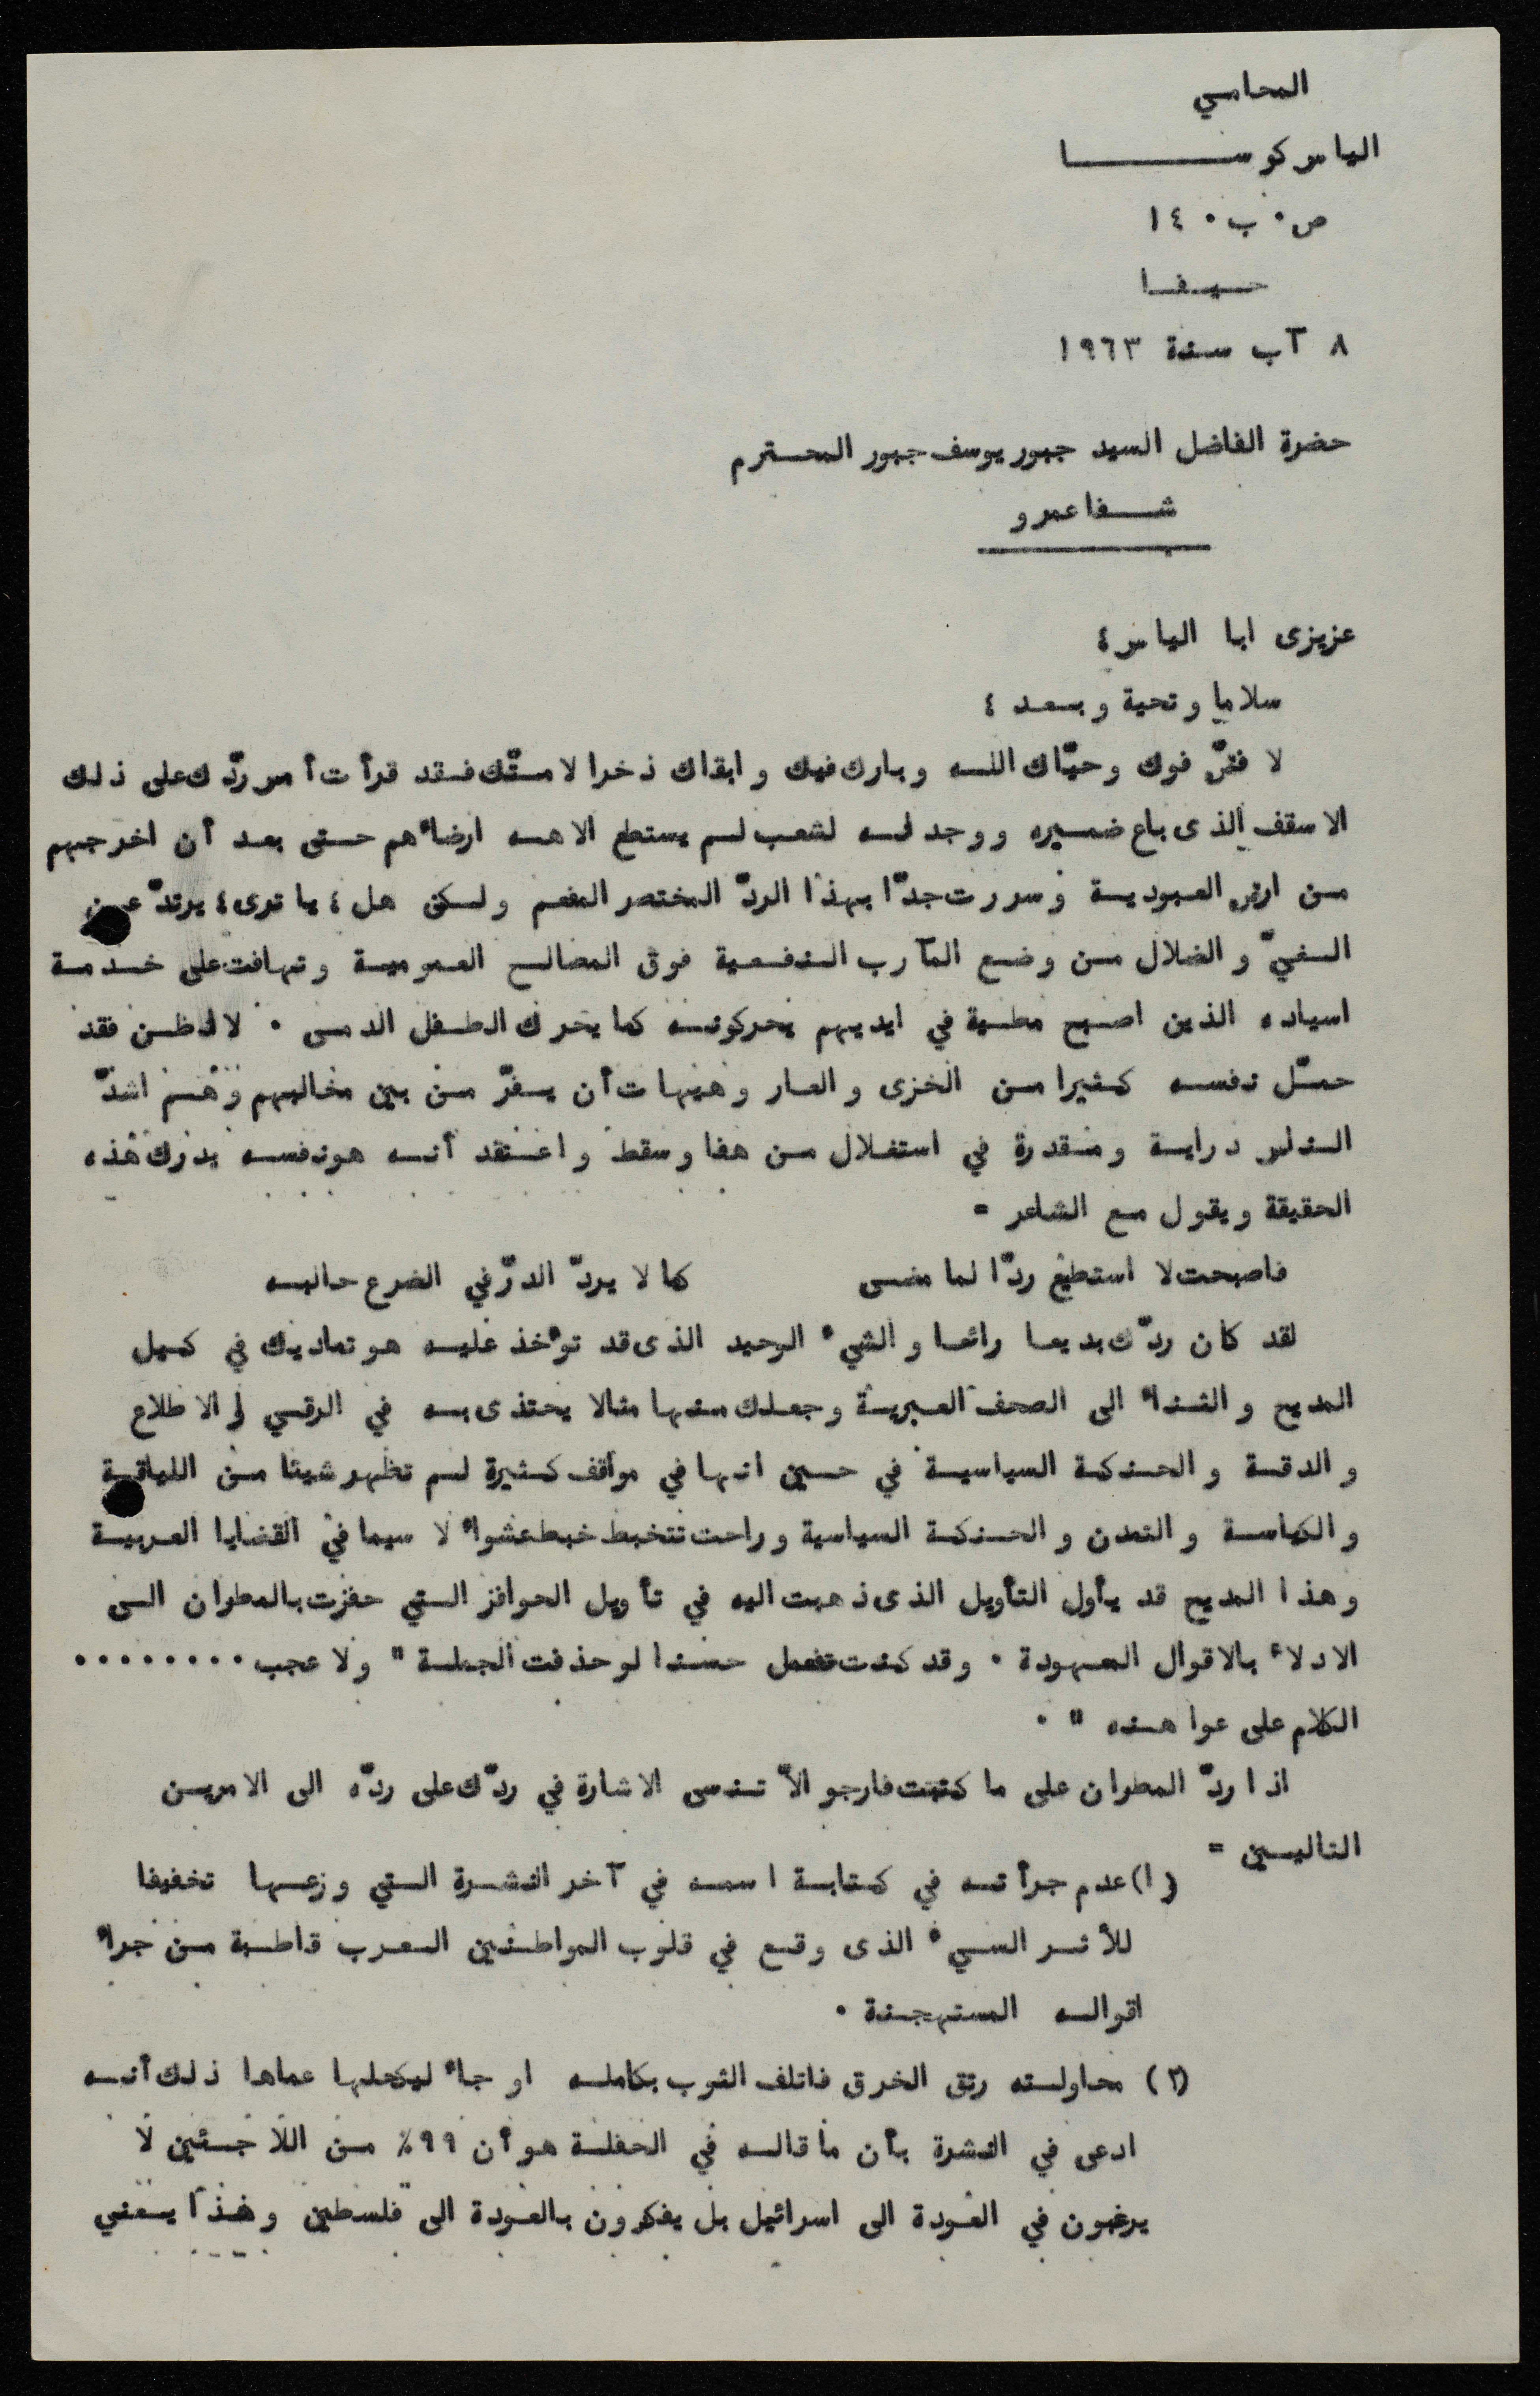 المحامي
الياس كوسا
ص٠ ب٠ ١٤٠
حيفا
٨ آب سنة ١٩٦٣
حضرة الفاضل السيد جبور يوسف جبور المحترم
شفاعمرو
عزيزى ابا الياس ،
سلاما وتحية وبعد ،
لا فضّ فوك وحيّاك الله وبارك فيك وابقاك ذخرا لامتك فقد قرأت أمس ردّك على ذلك
الاسقف الذى باع ضميره ووجد له لشعب لم يستطع الاهه ارضاءهم حتى بعد أن اخرجهم
من ارض العبودية وسررت جدّا بهذا الردّ المختصر المفعم ولكن هل ، يا ترى ، يرتدّ عن
الغيّ والضلال من وضع المآرب النفعية فوق المصالح العمومية وتهافت على خدمة
اسياده الذين اصبح مطية في ايديهم يحركونه كما يحرك الطفل الدمى ٠ لا اظن فقد
حمّل نفسه كثيرا من الخزى والعار وهيهات أن يفرّ من بين مخالبهم وهم اشدّ
الناس دراية ومقدرة في استغلال من هفا وسقط واعتقد أنه هو نفسه يدرك هذه
الحقيقة ويقول مع الشاعر =
فاصبحت لا استطيع ردّا لما مضى كما لا يردّ الدرّ في الضرع حالبه
لقد كان ردّك بديعا رائعا والشيء الوحيد الذى قد تؤخذ عليه هو تماديك في كيل
المديح والثناء الى الصحف العبرية وجعلك منها مثالا يحتذى به في الرقي والاطلاع
والدقة والحنكة السياسية في حين انها في مواقف كثيرة لم تظهر شيئا من اللياقة
والكياسة والتمدن والحنكة السياسية وراحت تتخبط خبط عشواء لا سيما في القضايا العربية
وهذا المديح قد يأول التأويل الذى ذهبت اليه في تأويل الحوافز التي حفزت بالمطران الى
الادلاء بالاقوال المعهودة ٠ وقد كنت تفعل حسنا لو حذفت الجملة " ولا عجب ٠٠٠٠٠٠٠٠
الكلام على عواهنه " ٠
اذا ردّ المطران على ما كتبت فارجو الاّ تنسى الاشارة في ردّك على ردّه الى الامرين
التاليين =
(١) عدم جرأته في كتابة اسمه في آخر النشرة التي وزعها تخفيفا
للأثر السيء الذى وقع في قلوب المواطنين العرب قاطبة من جراء
اقواله المستهجنة ٠
(٢) محاولته رتق الخرق فاتلف الثوب بكامله او جاء ليكحلها عماها ذلك أنه
ادعى في النشرة بأن ما قاله في الحفلة هو أن ٩٩٪ من اللاجئين لا
يرغبون في العودة الى اسرائيل بل يفكرون بالعودة الى فلسطين وهذا يعني